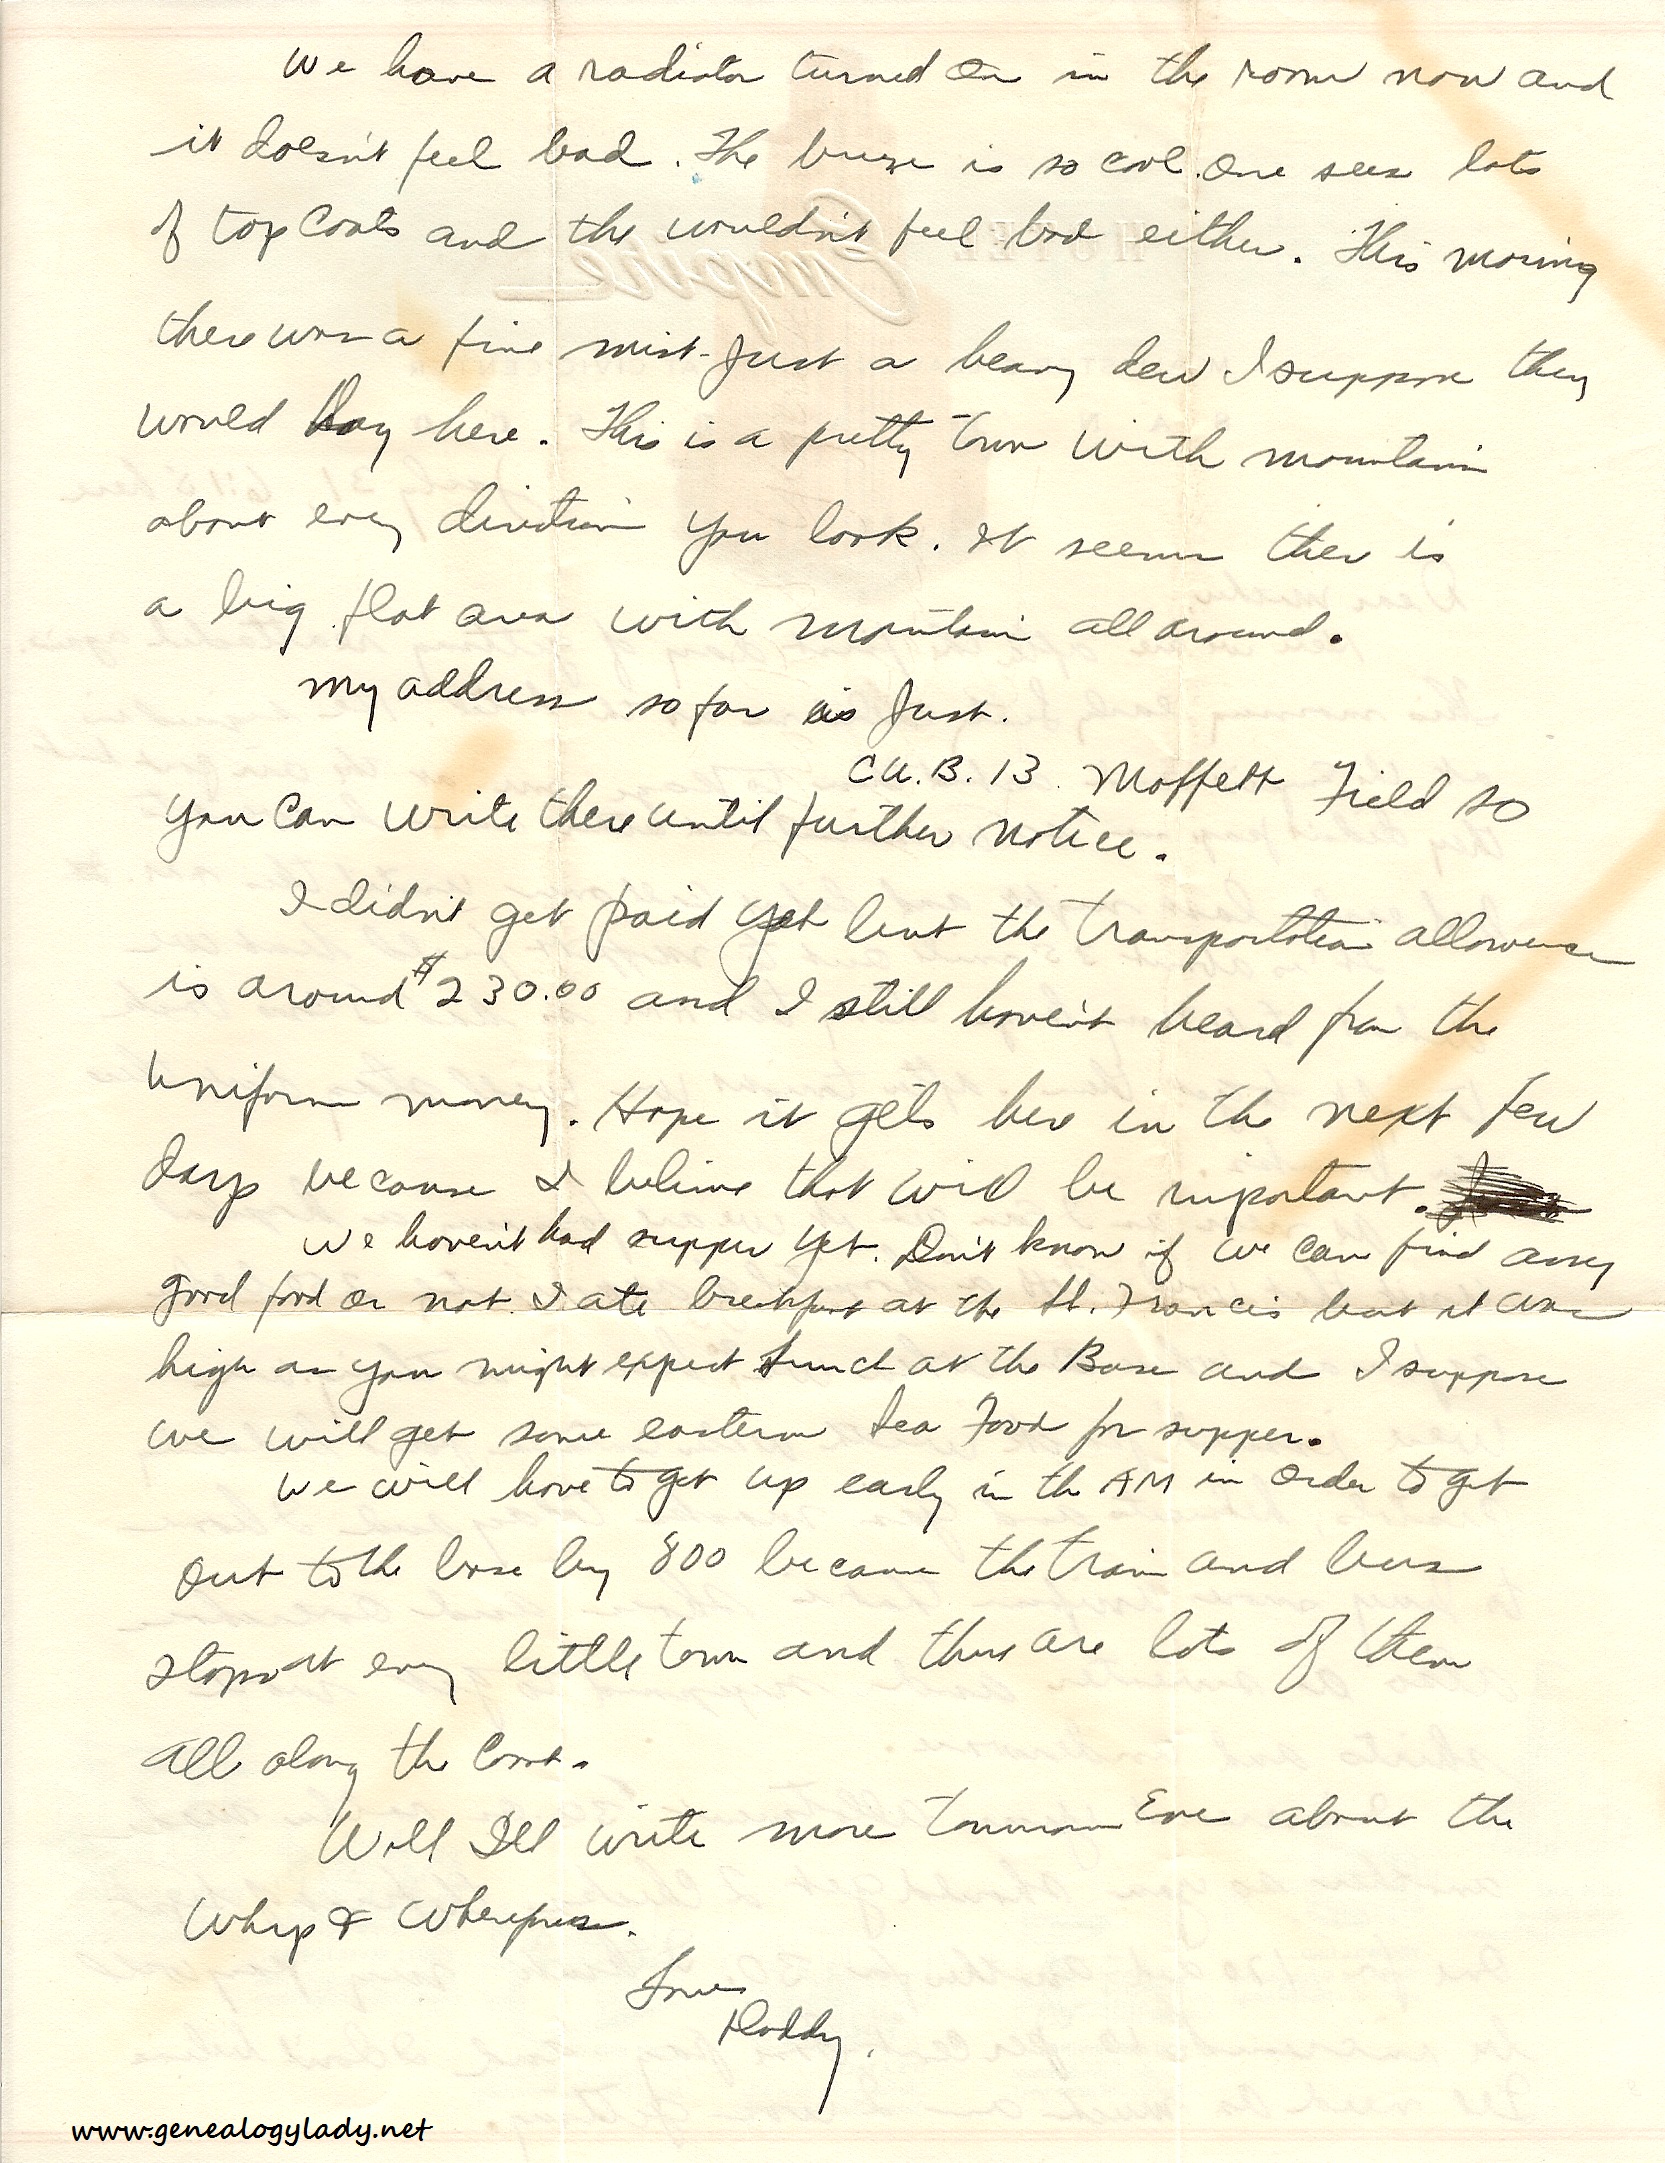 We have a radiator turned on in the room now and
it doesn't feel bad. The breeze is so cool. One sees lots
of top coats and the wouldn't feel bad either. This morning
there was a fine mist - Just a heavy dew I suppose they
would say here. This is a pretty town with mountain
about every direction you look. It seems ther is
a big flat area with mountain all around.
My address so far is Just.
C.U.B. 13 Moffett Field so
you can write there until further notice.
I didn't get paid yet but the transportation allowance
is around $230.00 and I still haven't heard from the
uniform money. Hope it gets here in the next few
days because I believe that will be important.
We haven't had supper yet. Don't know if we can find any
good food or not. I ate breakfast at the St. Francis but it was
high as you might expect lunch at the Base and I suppose
we will get some eastern Sea Food for supper.
We will have to get up early in the AM in order to get
out to the base by 800 because the train and bus
stops at every little town and there are lots of them
all along the Coast.
Well I'll write more tomorrow Eve about the
Whys & Wherefores.
Love
Daddy.
www.genealogylady.net